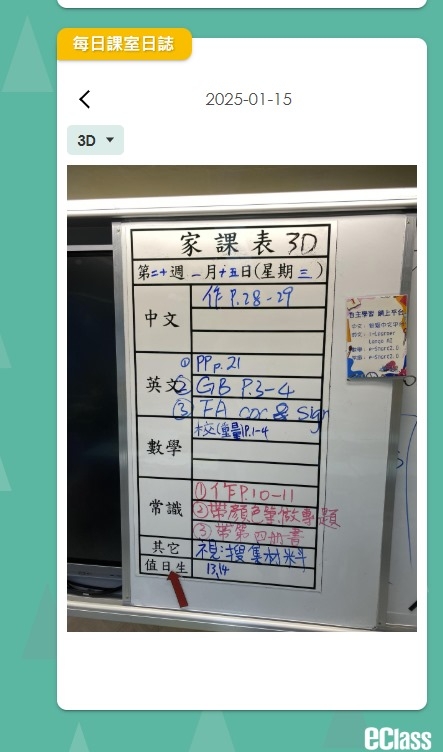 每日課室日誌
2025-01-15
3D
家課表 3D
第二十週一月十五日(星期三)
中文
作P.28-29
英文
① PP p.21
② GB P.3-4
③ FA cor & sign
數學
校(重量)P.1-4
常識
①作P.10-11
②帶顏色筆做專題
③帶第四冊書
其它
視:搜集材料
值日生
13,14
自主學習 網上平台
eClass